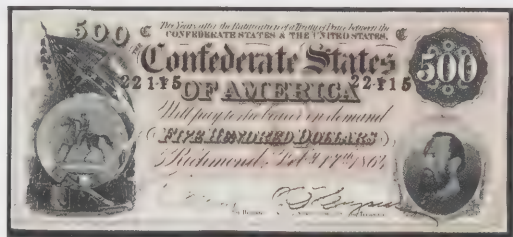 500 C Two Years after the Ratification of a Treaty of Peace between the C
CONFEDERATE STATES & THE UNITED STATES,
Confederate States 500
22115 22115
OF AMERICA
Will pay to the bearer on demand
FIVE HUNDRED DOLLARS
Richmond, Feb 17th 1864